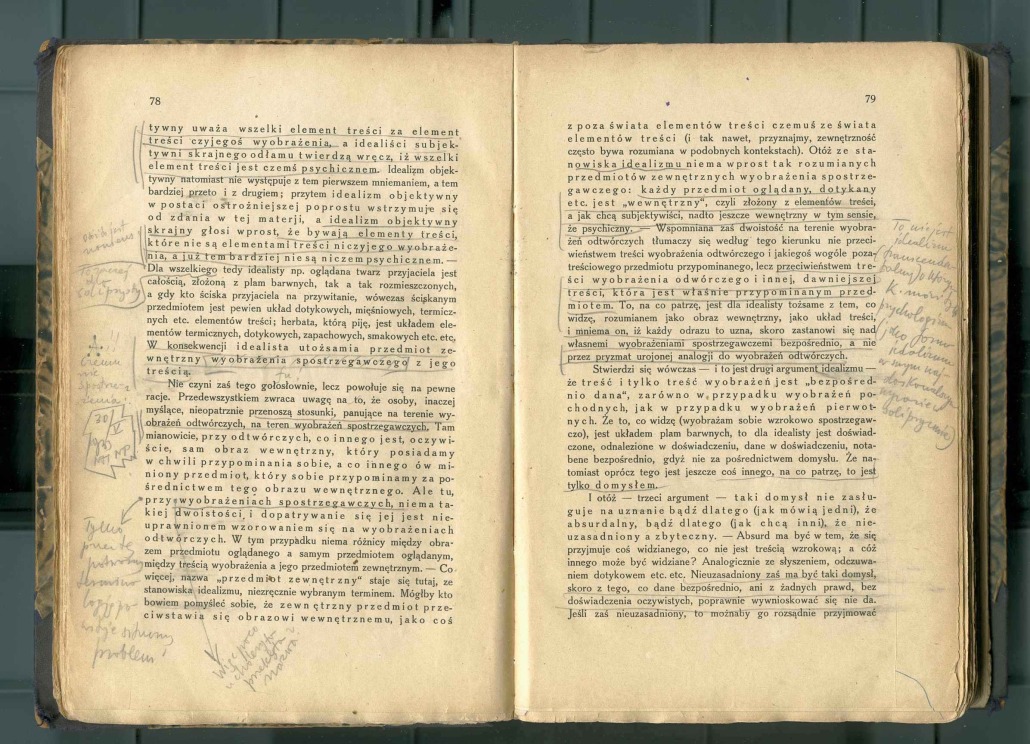 78
tywny uważa wszelki element treści za element
treści czyjegoś wyobrażenia, a idealiści subjek-
tywni skrajnego odłamu twierdzą wręcz, iż wszelki
element treści jest czemś psychicznem. Idealizm objek-
tywny natomiast nie występuje z tem pierwszem mniemaniem, a tem
bardziej przeto i z drugiem; przytem idealizm objektywny
w postaci ostrożniejszej poprostu wstrzymuje się
od zdania w tej materji, a idealizm objektywny
skrajny głosi wprost, że bywają elementy treści,
które nie są elementami treści niczyjego wyobraże-
nia, a już tem bardziej nie są niczem psychicznem. —
Dla wszelkiego tedy idealisty np. oglądana twarz przyjaciela jest
całością, złożoną z plam barwnych, tak a tak rozmieszczonych,
a gdy kto ściska przyjaciela na przywitanie, wówczas ściskanym
przedmiotem jest pewien układ dotykowych, mięśniowych, termicz-
nych etc. elementów treści; herbata, którą piję, jest układem ele-
mentów termicznych, dotykowych, zapachowych, smakowych etc. etc.
W konsekwencji idealista utożsamia przedmiot ze-
wnętrzny wyobrażenia spostrzegawczego z jego
treścią.
Nie czyni zaś tego gołosłownie, lecz powołuje się na pewne
racje. Przedewszystkiem zwraca uwagę na to, że osoby, inaczej
myślące, nieopatrznie przenoszą stosunki, panujące na terenie wy-
obrażeń odtwórczych, na teren wyobrażeń spostrzegawczych. Tam
mianowicie, przy odtwórczych, co innego jest, oczywi-
ście, sam obraz wewnętrzny, który posiadamy
w chwili przypominania sobie, a co innego ów mi-
niony przedmiot, który sobie przypominamy za po-
średnictwem tego obrazu wewnętrznego. Ale tu,
przy wyobrażeniach spostrzegawczych, niema ta-
kiej dwoistości i dopatrywanie się jej jest nie-
uprawnionem wzorowaniem się na wyobrażeniach
odtwórczych. W tym przypadku niema różnicy między obra-
zem przedmiotu oglądanego a samym przedmiotem oglądanym,
między treścią wyobrażenia a jego przedmiotem zewnętrznym. — Co
więcej, nazwa „przedmiot zewnętrzny" staje się tutaj, ze
stanowiska idealizmu, niezręcznie wybranym terminem. Mógłby kto
bowiem pomyśleć sobie, że zewnętrzny przedmiot prze-
ciwstawia się obrazowi wewnętrznemu, jako coś
problem!
79
z poza świata elementów treści czemuś ze świata
elementów treści (i tak nawet, przyznajmy, zewnętrzność
często bywa rozumiana w podobnych kontekstach). Otóż ze sta-
nowiska idealizmu niema wprost tak rozumianych
przedmiotów zewnętrznych wyobrażenia spostrze-
gawczego: każdy przedmiot oglądany, dotykany
etc. jest „wewnętrzny", czyli złożony z elementów treści,
a jak chcą subjektywiści, nadto jeszcze wewnętrzny w tym sensie,
że psychiczny. — Wspomniana zaś dwoistość na terenie wyobra-
żeń odtwórczych tłumaczy się według tego kierunku nie przeci-
wieństwem treści wyobrażenia odtwórczego i jakiegoś wogóle poza-
treściowego przedmiotu przypominanego, lecz przeciwieństwem tre-
ści wyobrażenia odwórczego i innej, dawniejszej
treści, która jest właśnie przypominanym przed-
miotem. To, na co patrzę, jest dla idealisty tożsame z tem, co
widzę, rozumianem jako obraz wewnętrzny, jako układ treści,
i mniema on, iż każdy odrazu to uzna, skoro zastanowi się nad
własnemi wyobrażeniami spostrzegawczemi bezpośrednio, a nie
przez pryzmat urojonej analogji do wyobrażeń odtwórczych.
Stwierdzi się wówczas — i to jest drugi argument idealizmu —
że treść i tylko treść wyobrażeń jest „bezpośred-
nio dana", zarówno w przypadku wyobrażeń po-
chodnych, jak w przypadku wyobrażeń pierwot-
nych. Że to, co widzę (wyobrażam sobie wzrokowo spostrzegaw-
czo), jest układem plam barwnych, to dla idealisty jest doświad-
czone, odnalezione w doświadczeniu, dane w doświadczeniu, nota-
bene bezpośrednio, gdyż nie za pośrednictwem domysłu. Że na-
tomiast oprócz tego jest jeszcze coś innego, na co patrzę, to jest
tylko domysłem.
I otóż — trzeci argument — taki domysł nie zasłu-
guje na uznanie bądź dlatego (jak mówią jedni), że
absurdalny, bądź dlatego (jak chcą inni), że nie-
uzasadniony a zbyteczny. — Absurd ma być w tem, że się
przyjmuje coś widzianego, co nie jest treścią wzrokową; a cóż
innego może być widziane? Analogicznie ze słyszeniem, odczuwa-
niem dotykowem etc. etc. Nieuzasadniony zaś ma być taki domysł,
skoro z tego, co dane bezpośrednio, ani z żadnych prawd, bez
doświadczenia oczywistych, poprawnie wywnioskować się nie da.
Jeśli zaś nieuzasadniony, to możnaby go rozsądnie przyjmować